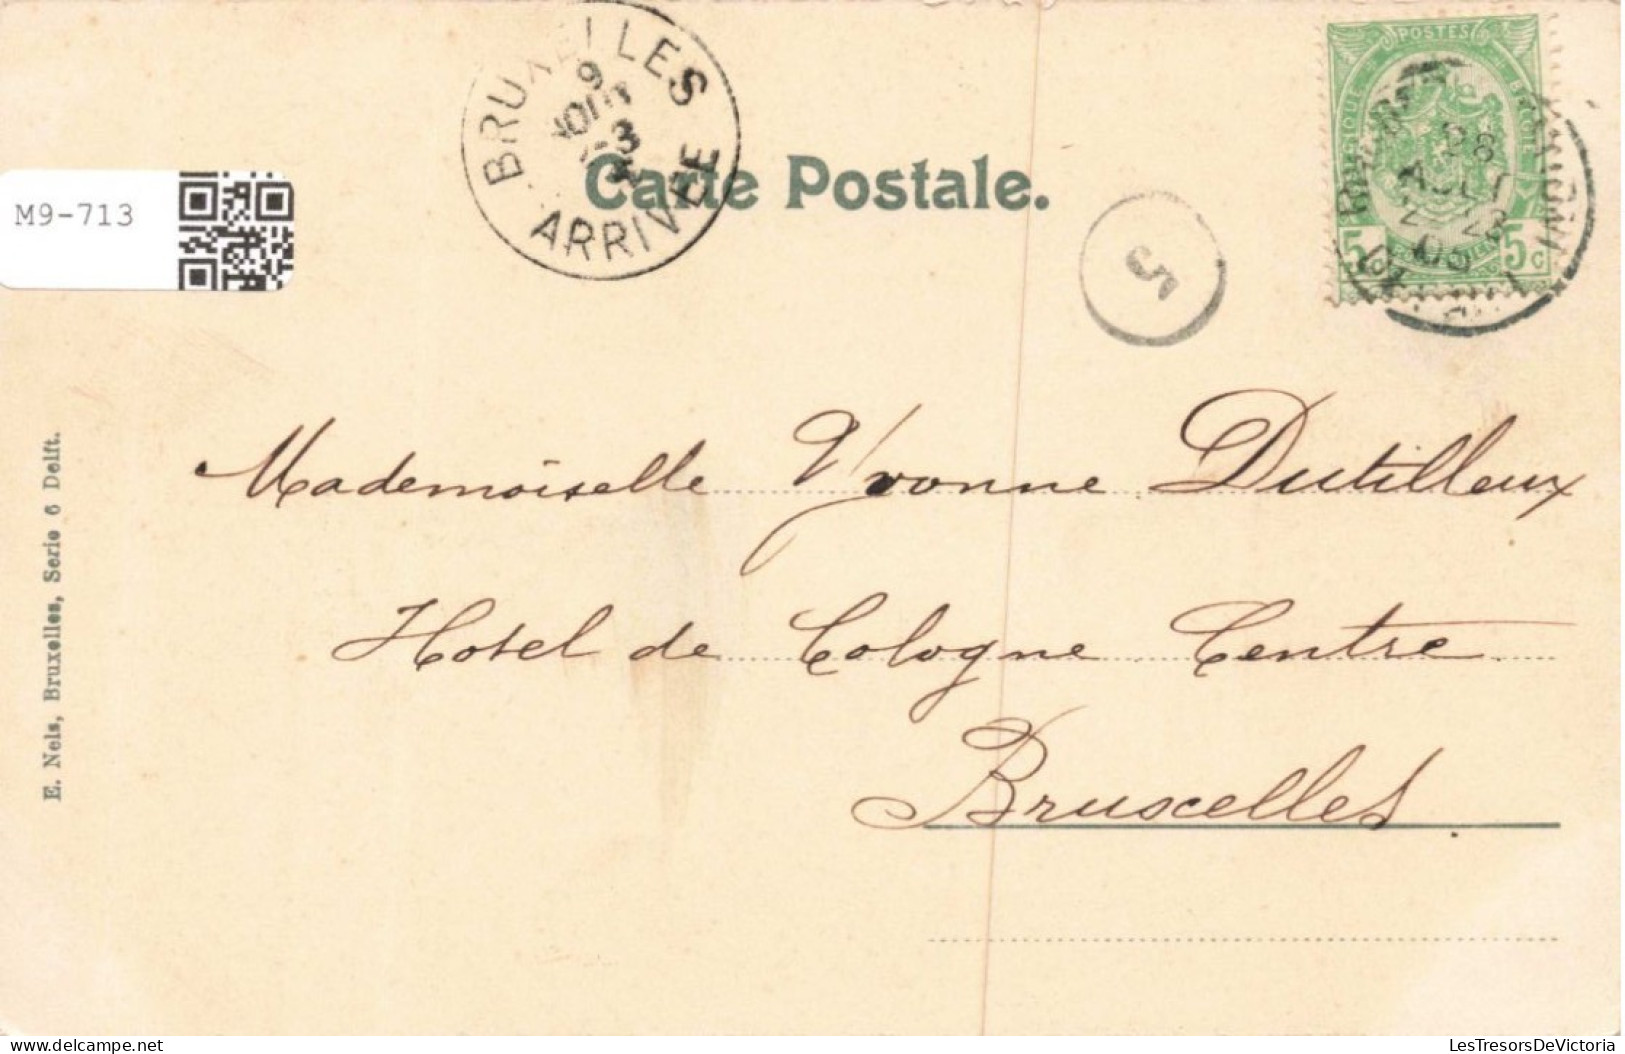 BRUXELLES
9
AOUT
ARRIVEE
M9-713
Carte Postale.
5
POSTES
28
AOUT
05
5 5c
E. Nels, Bruxelles, Serie 6 Delft.
Mademoiselle Yvonne Dutilleux
Hotel de Cologne Centre
Bruxelles.
LesTresorsDeVictoria
www.delcampe.net